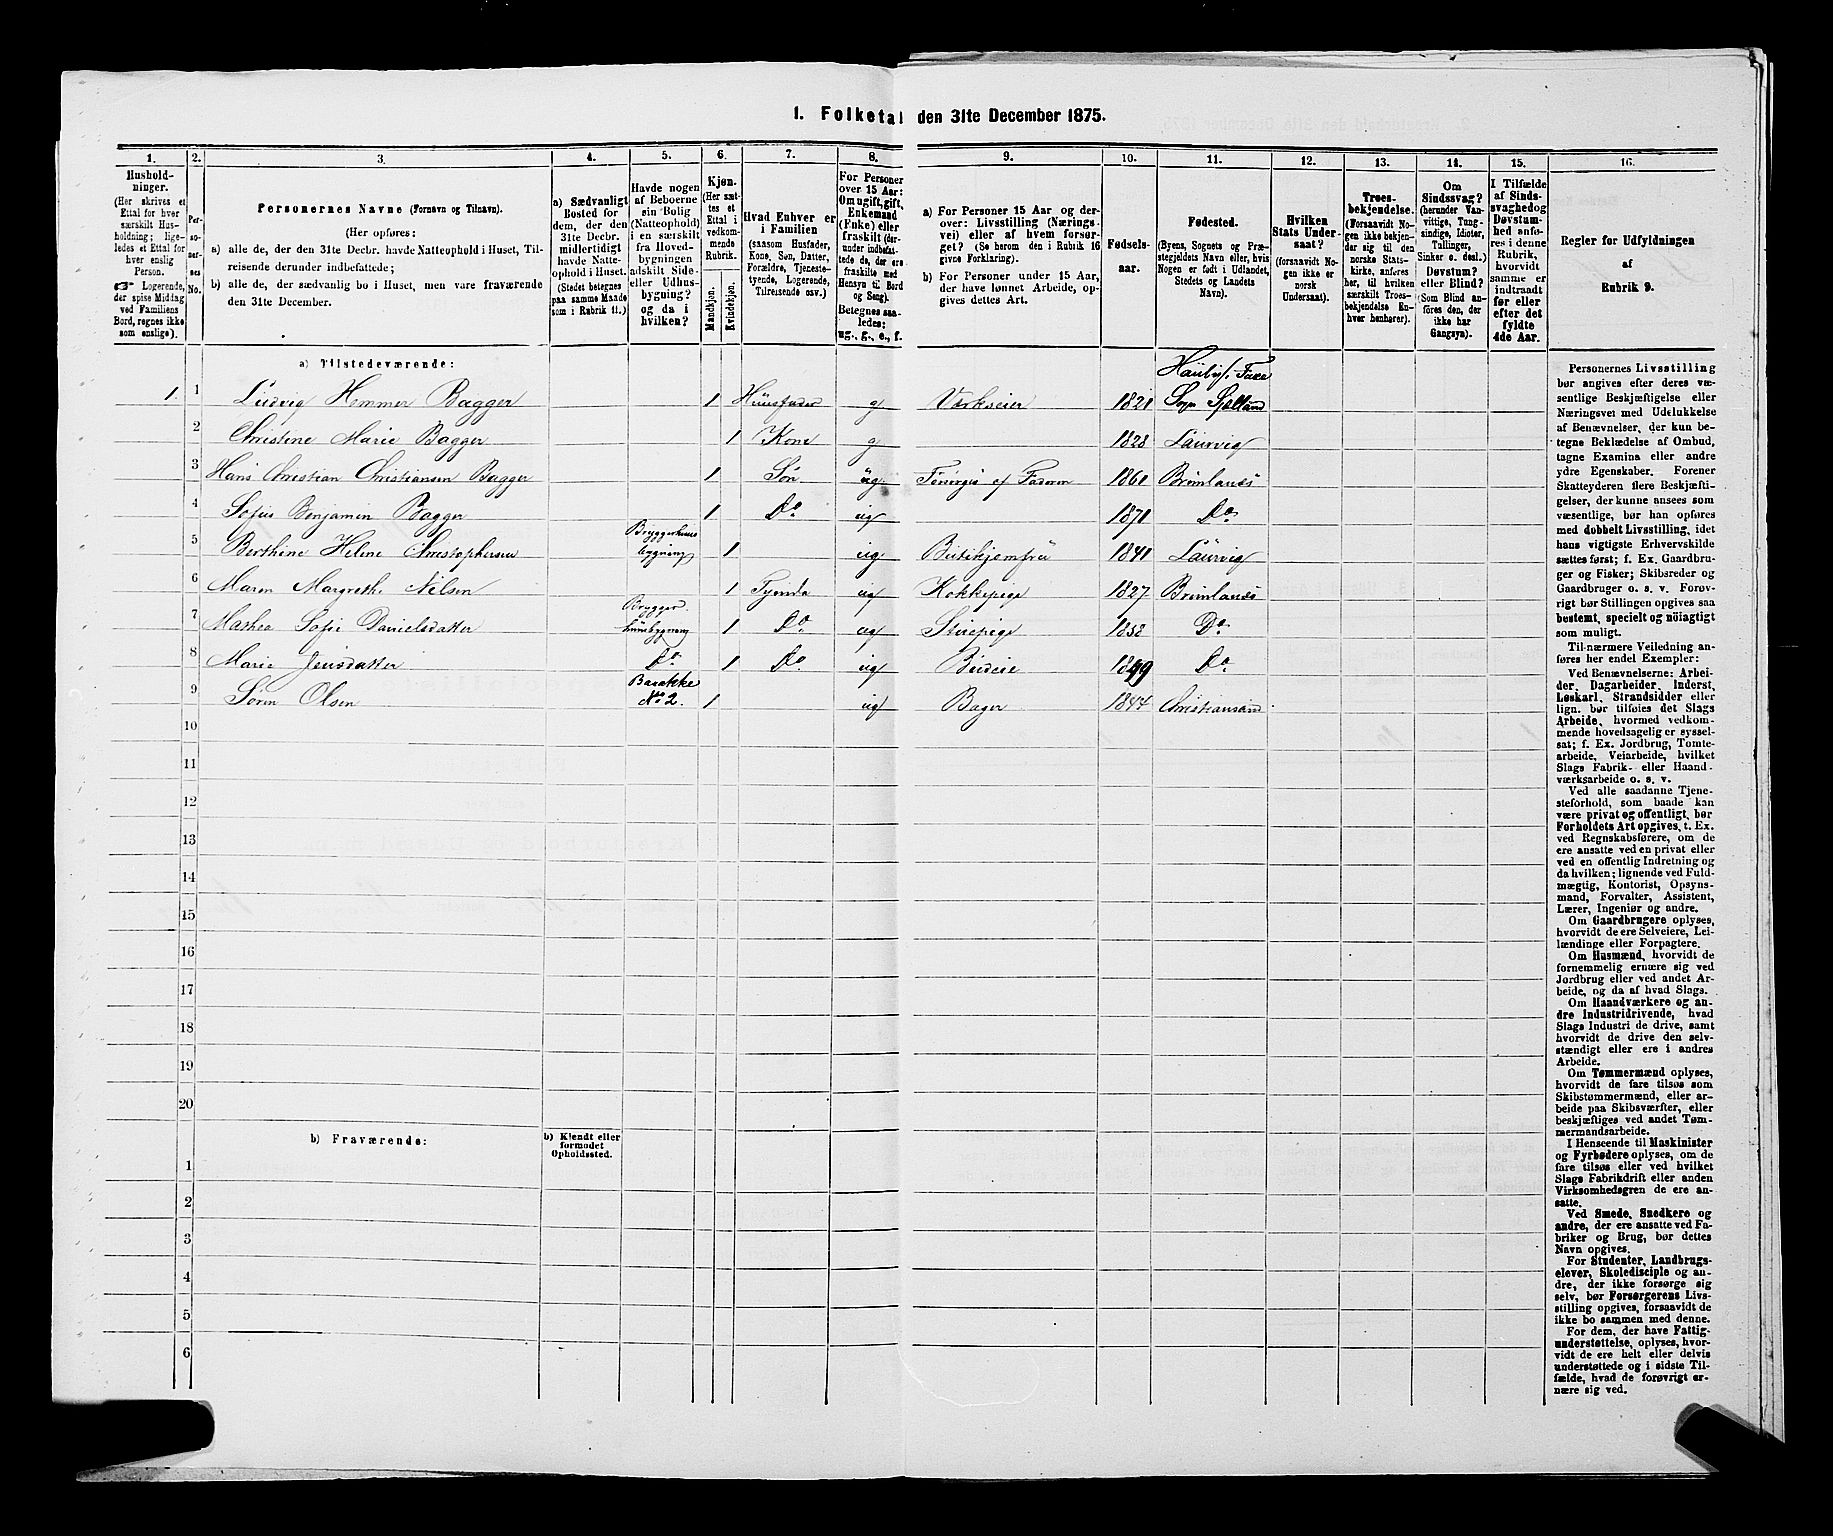 1. Folketal den 31te December 1875.
1.
2.
3.
4.
5.
6.
7.
8.
9.
10.
11.
12.
13.
14.
15.
16.
Hushold-
ninger.
(Her skrives et
Ettal for hver
særskilt Hus-
holdning; lige-
ledes et Ettal for
hver enslig
Person.
☞ Logerende,
der spise Middag
ved Familiens
Bord, regnes ikke
som enslige).
Per-
so-
ner-
nes
No.
Personernes Navne (Fornavn og Tilnavn).
(Her opføres:
a) alle de, der den 31te Decbr. havde Natteophold i Huset, Til-
reisende derunder indbefattede;
b) alle de, der sædvanlig bo i Huset, men vare fraværende
den 31te December.
a) Sædvanligt
Bosted for
dem, der den
31te Decbr.
midlertidigt
havde Natte-
ophold i Huset.
(Stedet betegnes
paa samme Maade
som i Rubrik 11.)
Havde nogen
af Beboerne
sin Bolig
(Natteophold)
i en særskilt
fra Hoved-
bygningen
adskilt Side-
eller Udhus-
bygning?
og da i
hvilken?
Kjøn.
(Her sæt-
tes et
Ettal i
vedkom-
mende
Rubrik.
Mandkjøn.
Kvindekjøn.
Hvad Enhver er
i Familien
(saasom Husfader,
Kone, Søn, Datter,
Forældre, Tjeneste-
tyende, Logerende,
Tilreisende osv.)
For Personer
over 15 Aar:
Om ugift, gift,
Enkemand
(Enke) eller
fraskilt (der-
under indbefat-
tede de, der ere
fraskilte med
Hensyn til Bord
og Seng).
Betegnes saa-
ledes:
ug., g., e., f.
a) For Personer 15 Aar og der-
over: Livsstilling (Nærings-
vei) eller af hvem forsør-
get? (Se herom den i Rubrik 16
givne Forklaring).
b) For Personer under 15 Aar,
der have lønnet Arbeide, op-
gives dettes Art.
Fødsels-
aar.
Fødested.
(Byens, Sognets og Præ-
stegjeldets Navn eller, hvis
Nogen er født i Udlandet,
Stedets og Landets
Navn).
Hvilken
Stats Under-
saat?
(forsaavidt No-
gen ikke er
norsk
Undersaat).
Troes-
bekjendelse.
(Forsaavidt No-
gen ikke bekjen-
der sig til den
norske Stats-
kirke, anføres
her, til hvilken
særskilt Troes-
bekjendelse En-
hver henhører).
Om
Sindssvag?
(herunder Van-
vittige, Tung-
sindige, Idioter,
Tullinger,
Sinker o. desl.)
Døvstum?
eller Blind?
(Som Blind an-
føres den, der
ikke har
Gangsyn).
I Tilfælde
af Sinds-
svaghed og
Døvstum-
hed anfø-
res i denne
Rubrik,
hvorvidt
samme er
indtraadt
før eller
efter det
fyldte
4de Aar.
Regler for Udfyldningen
af
Rubrik 9.
a) Tilstedeværende:
1. 1 Ludvig Hemmer Bagger 1 Huusfader g Værkseier 1821 Sogn Sjælland
2 Christine Marie Bagger 1 Kone g 1828 Laurvig
3 Hans Christian Christiansen Bagger 1 Søn ug. af Faderen 1860 Brunlanæs
4 Sofus Benjamin Bagger 1 Do ug 1871 Do
5 Berthine Helene Christophersen Bryggerhuus bygning 1 ug Butikjomfru 1841 Laurvig
6 Maren Margrethe Nilsen 1 Tyende ug Kokkepige 1827 Brunlanæs
7 Mathea Sofie Danielsdatter 1 Do ug Stuepige 1858 Do
8 Marie Jensdatter Do 1 Do ug Budeie 1849 Do
9 Søren Olsen Barakke No 2. 1 ug Bager 1844 Christiansand
10
11
12
13
14
15
16
17
18
19
20
b) Fraværende:
b) Kjendt eller
formodet
Opholdssted.
1
2
3
4
5
6
Personernes Livsstilling
bør angives efter deres væ-
sentlige Beskjæftigelse eller
Næringsvei med Udelukkelse
af Benævnelser, der kun be-
tegne Beklædelse af Ombud,
tagne Examina eller andre
ydre Egenskaber. Forener
Skatteyderen flere Beskjæfti-
gelser, der kunne ansees som
væsentlige, bør han opføres
med dobbelt Livsstilling, idet
hans vigtigste Erhvervskilde
sættes først; f. Ex. Gaardbru-
ger og Fisker; Skibsreder og
Gaardbruger o. s. v. Forøv-
rigt bør Stillingen opgives saa
bestemt, specielt og nöiagtigt
som muligt.
Til nærmere Veiledning an-
føres her endel Exempler:
Ved Benævnelserne: Arbei-
der, Dagarbeider, Inderst,
Løskarl, Strandsidder eller
lign. bør tilføies det Slags
Arbeide, hvormed vedkom-
mende hovedsagelig er syssel-
sat; f. Ex. Jordbrug, Tomte-
arbeide, Veiarbeide, hvilket
Slags Fabrik- eller Haand-
værksarbeide o. s. v.
Ved alle saadanne Tjene-
steforhold, som baade kan
være privat og offentligt, bør
Forholdets Art opgives, t. Ex.
ved Regnskabsførere, om de
ere ansatte ved en privat eller
ved en offentlig Indretning og
da hvilken; lignende ved Fuld-
mægtig, Kontorist, Opsyns-
mand, Forvalter, Assistent,
Lærer, Ingeniør og andre.
Om Gaardbrugere oplyses,
hvorvidt de ere Selveiere, Lei-
lændinge eller Forpagtere.
Om Husmænd, hvorvidt de
fornemmelig ernære sig ved
Jordbrug eller ved andet Ar-
beide, og da af hvad Slags.
Om Haandværkere og an-
dre Industridrivende, hvad
Slags Industri de drive, samt
hvorvidt de drive den selv-
stændigt eller ere i andres
Arbeide.
Om Tømmermænd oplyses,
hvorvidt de fare tilsøs som
Skibstømmermænd, eller ar-
beide paa Skibsværfter, eller
beskjæftiges ved andet Tøm-
mermandsarbeide.
I Henseende til Maskinister
og Fyrbødere oplyses, om de
fare tilsøs eller ved hvilket
Slags Fabrikdrift eller anden
Virksomhedsgren de ere an-
satte.
Ved Smede, Snedkere og
andre, der ere ansatte ved Fa-
briker og Brug, bør dettes
Navn opgives.
For Studenter, Landbrugs-
elever, Skoledisciple og an-
dre, der ikke forsørge sig
selv, bør Forsørgerens Livs-
stilling opgives, forsaavidt de
ikke bo sammen med denne.
For dem, der have Fattig-
understøttelse, oplyses, hvor-
vidt de ere helt eller delvis
understøttede og i sidste Til-
fælde, hvad de forøvrigt er-
nære sig ved.